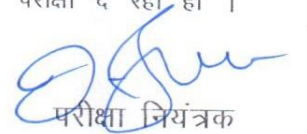 परीक्षा दे रहा हो |
परीक्षा नियंत्रक